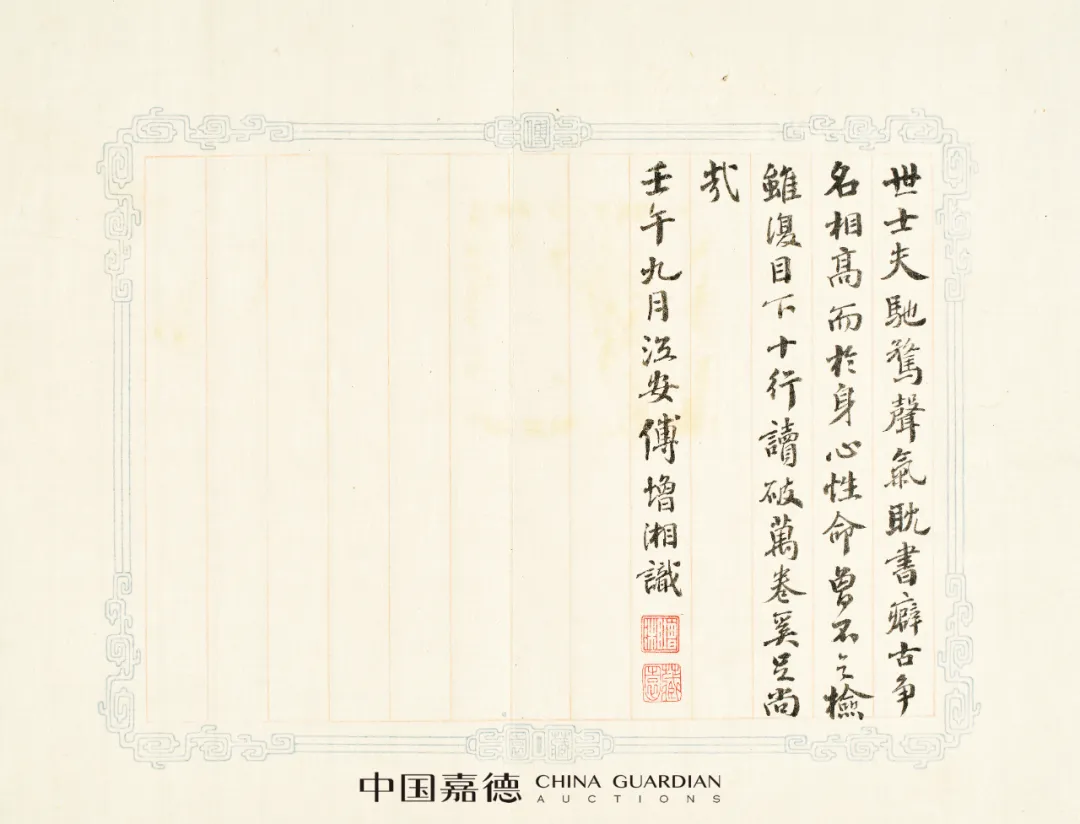 世士夫馳騖聲氣耽書癖古爭
名相高而於身心性命曾不之檢
雖復目下十行讀破萬卷奚足尚
哉
壬午九月江安傅增湘識
增湘
藏園
中国嘉德 CHINA GUARDIAN
AUCTIONS